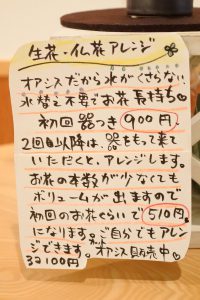 生花・仏花アレンジ
オアシスだから水がくさらない
水替え不要でお花長持ち
初回器つき900円
2回目以降は、器をもって来て
いただくと、アレンジします。
お花の本数が少なくても
ボリュームが出ますので
初回のお花ぐらいで510円
になります。ご自分でもアレン
ジできます。オアシス販売中
3コ100円